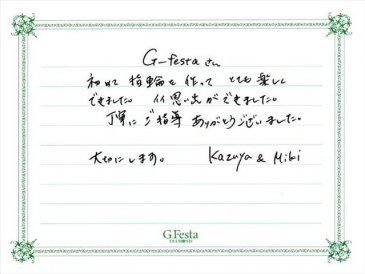 G-festaさん
初めて 指輪を 作って とても 楽しく
できました。 仆思い出ができました。
丁寧に ご指導 ありがとうございました。
大切にします。 Kazuya & Miki
G.Festa
DIAMOND